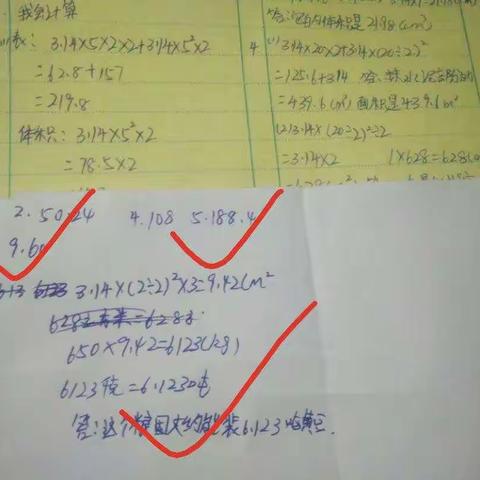 我会计算
3.14×5×2×2+3.14×5²×2
=62.8+157
=219.8
体积: 3.14×5²×2
=78.5×2
答: 它的体积是 2198(cm³)
4. (1) 3.14×20×2+3.14×(20÷2)²
=125.6+314
=439.6(m²) 面积是439.6m²
(2) 3.14×(20÷2)²÷2
=3.14×2 1×628=628
2. 50.24 4. 108 5. 188.4
9.6
3.14×(2÷2)²×3=9.42(m²
650×9.42=6123(kg)
6123千克=6.123吨
答:这个粮囤大约能装6.123吨黄豆.